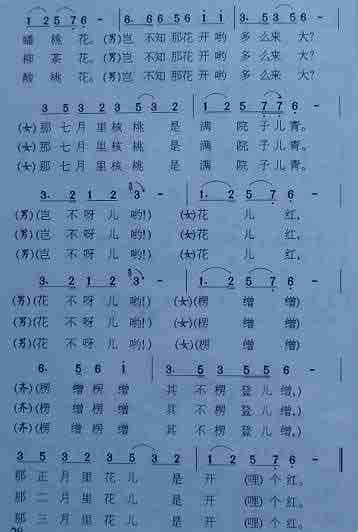 1 2 5 7 6 - | 3. 5 6 6 6 i i | 3. 5 3 2 3 -
蟠桃花。(男)岂不知那花开哟多么来大?
柳茶花。(男)岂不知那花开哟多么来大?
酸桃花。(男)岂不知那花开哟多么来大?
3 5 3 2 3 5 3 2 | 1 2 5 7 7 6 -
(女)那七月里核桃是满院子儿青。
(女)那七月里核桃是满院子儿青。
(女)那七月里核桃是满院子儿青。
3. 2 1 2 3 | 1. 2 5 7 6 -
(男)(岂不呀儿哟!) (女)花儿红,
(男)(岂不呀儿哟!) (女)花儿红,
(男)(岂不呀儿哟!) (女)花儿红,
3. 2 1 2 3 | 1. 2 5 7 6 -
(男)(花不呀儿哟!) (女)(楞缯缯)
(男)(花不呀儿哟!) (女)(楞缯缯)
(男)(花不呀儿哟!) (女)(楞缯缯)
6. 5 6 i | 3. 5 5 3 2 3
(齐)(楞缯楞缯其不楞登儿缯,)
(齐)(楞缯楞缯其不楞登儿缯,)
(齐)(楞缯楞缯其不楞登儿缯,)
3 5 3 2 3 5 3 2 | 1 2 5 7 6 -
那正月里花儿是开(哩)个红。
那二月里花儿是开(哩)个红。
那三月里花儿是开(哩)个红。